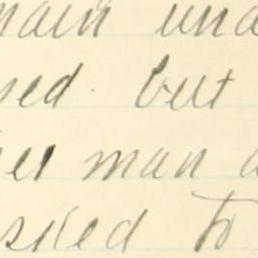 main und
sed but
her man a
sired to